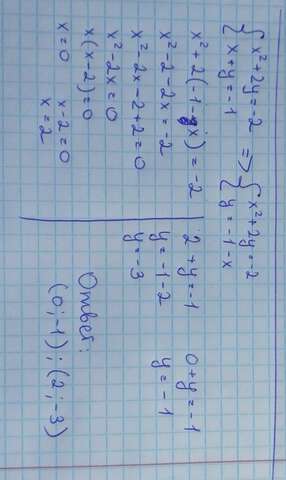 { x²+2y=-2 => { x²+2y=-2
{ x+y=-1 { y=-1-x
x²+2(-1-x)=-2
x²-2-2x=-2
x²-2x-2+2=0
x²-2x=0
x(x-2)=0
x=0 x-2=0
x=2
2+y=-1 0+y=-1
y=-1-2 y=-1
y=-3
Ответ:
(0;-1);(2;-3)